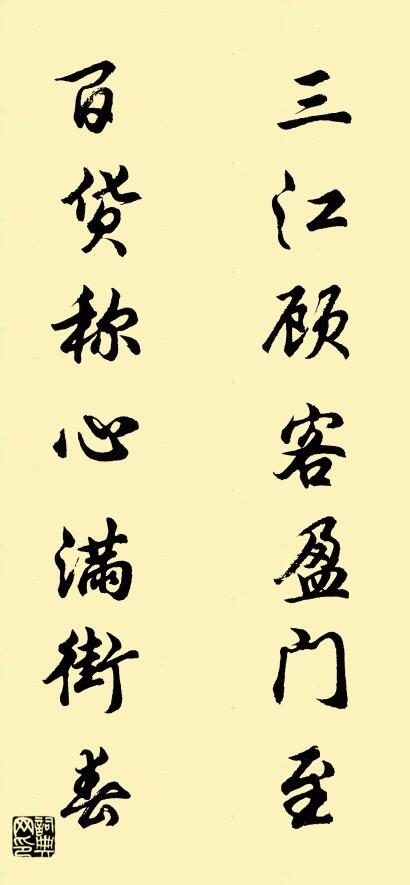 三江顾客盈门至
百货称心满街春
词典网印